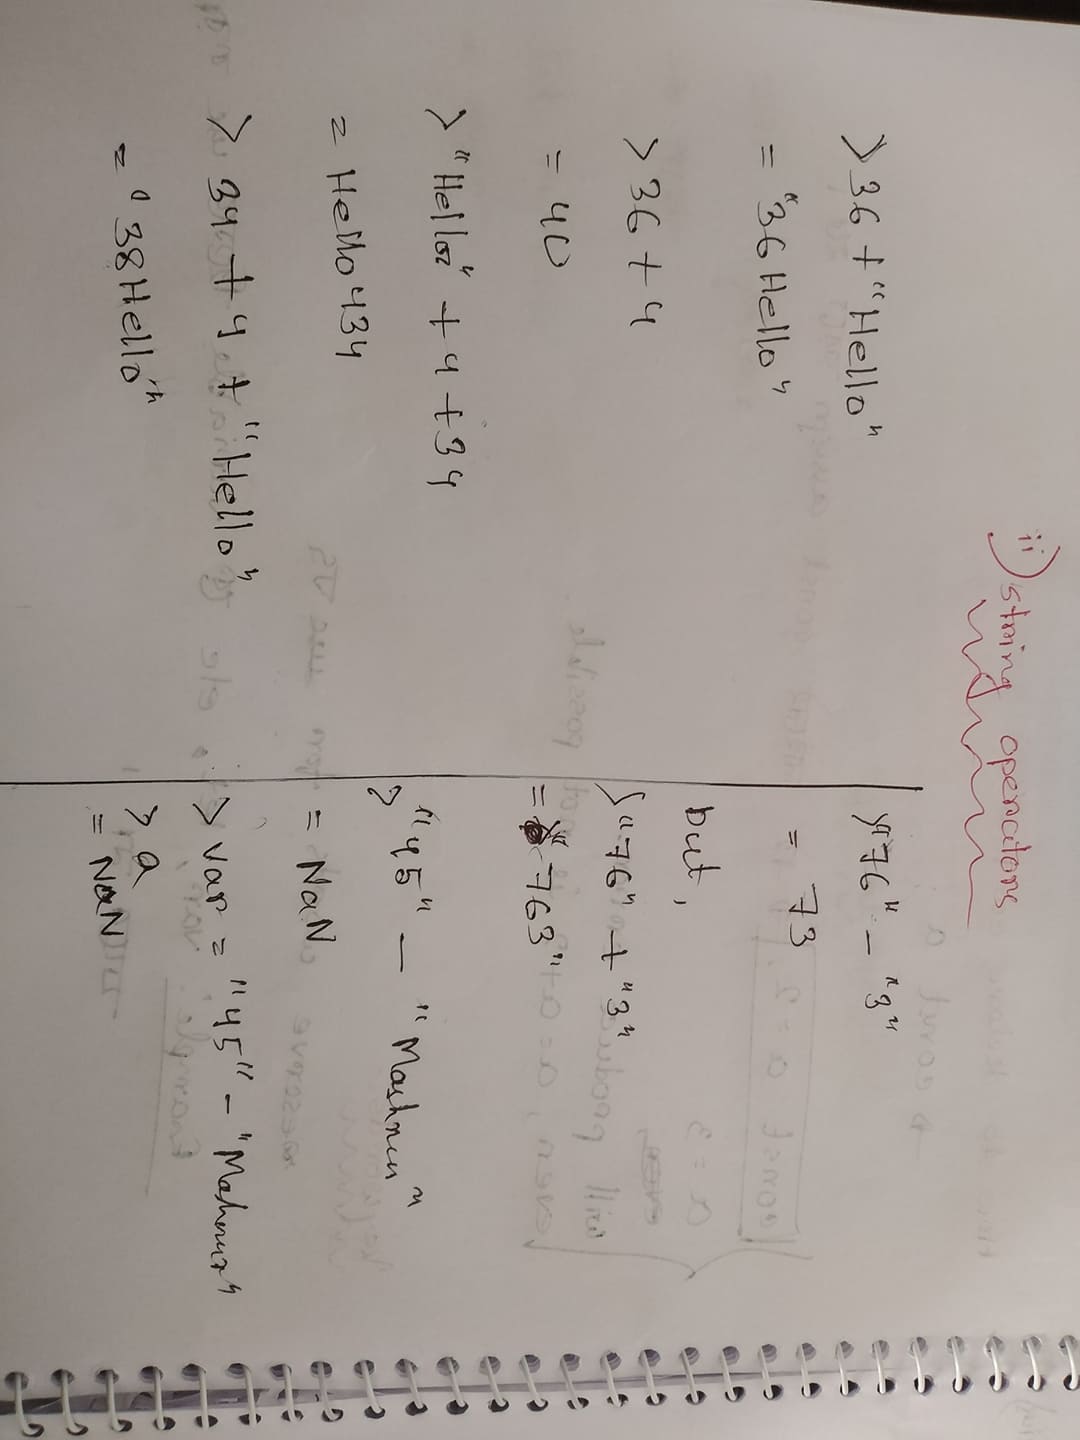 ii) string operators
> 36 + "Hello"
= "36 Hello"
> 36 + 4
= 40
> "Hello" + 4 + 34
= Hello 434
> 34 + 4 + "Hello"
= "38Hello"
> "76" - "3"
= 73
but,
> "76" + "3"
= "763"
> "45" -
= NaN
> var = "45" -
> a
= NaN